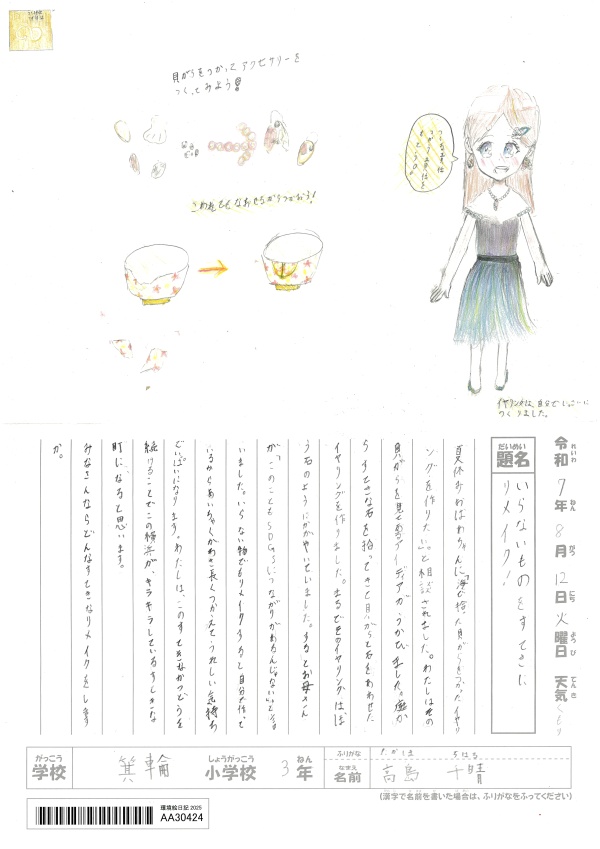 貝がらをつかってアクセサリーを
つくってみよう!
こわれてもなおせちがうつかおう!
イヤリングは、自分でじっさいに
つくりました。
令和7年8月12日火曜日 天気くもり
れいわ ねん がつ にち ようび てんき
だいめい
題名
いらないものをすてきに
リメイク!
夏休みおばあちゃんに「海で拾った貝がらをつかってイヤリ
ングを作りたい。」と相談されました。わたしはその
貝がらを見せアイディアがうかびました。庭か
らすてきな石を拾ってきて貝がらと石をあわせた
イヤリングを作りました。まるでそのイヤリングは、ほ
う石のようにかがやいていました。するとお母さん
が「このこともSDGsにつながりがあるんじゃない。」と言
いました。いらない物でもリメイクすると自分で作って
いるからあいちゃくがわき長くつかえてうれしい気持ち
でいっぱいになります。わたしは、このすてきなかつどうを
続けることでこの横浜が、キラキラしているすてきな
町になると思います。
みなさんならどんなすてきなリメイクをします
か。
がっこう
学校
箕輪
しょうがっこう
小学校
3年
ねん
ふりがな
たかしま ちはる
なまえ
名前
高島 千晴
(漢字で名前を書いた場合は、ふりがなをふってください)
環境絵日記 2025
AA30424